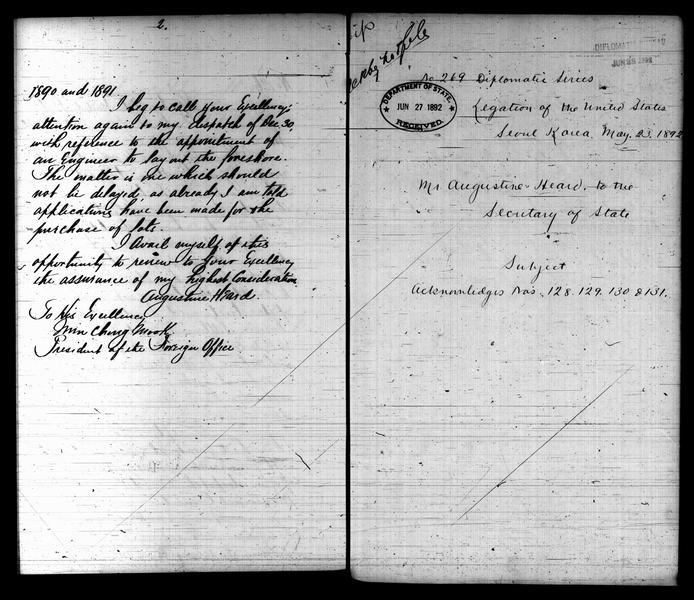 2.
1890 and 1891
I beg to call your Excellency's
attention again to my dispatch of Dec. 30,
with reference to the appointment of
an Engineer to lay out the foreshore.
The matter is one which should
not be delayed, as already I am told
applications have been made for the
purchase of lots.
I avail myself of this
opportunity to renew to Your Excellency
the assurance of my highest Consideration
Augustine Heard.
To His Excellency
Min Chong Mook,
President of the Foreign Office
No 269 Diplomatic Series
DEPARTMENT OF STATE,
JUN 27 1892
RECEIVED.
Legation of the United States
Seoul Korea, May. 23. 1892
Mr Augustine Heard, to the
Secretary of State
Subject
Acknowledges Nos. 128. 129. 130 & 131.